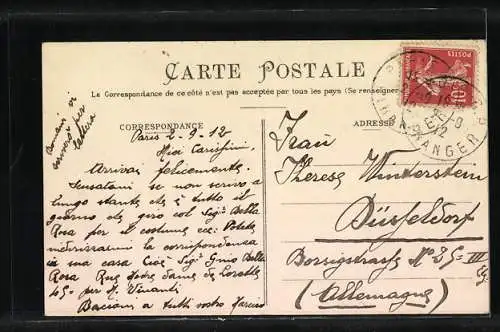 CARTE POSTALE
Le Correspondance de ce côté n'est pas acceptée par tous les pays (Se renseigner
CORRESPONDANCE
ADRESSE
POSTES
10
ETRANGER
Paris 2-9-12
Miei Carissimi,
Arrivai felicemente.
Scusatemi se non scrivo a
lungo stante che è tutto il
giorno che giro col Sigr Della
Rosa per il costume ecc: Potete
indirizzarmi la corrispondenza
in sua casa Cioè Sigr Gino Della
Rosa Rue Notre Dame de Lorette
45- per M. Vinanti
Bacioni a tutti vostro
Frau
Therese Winterstein
Düsseldorf
Borsigstrasse No 25-III
(Allemagne)